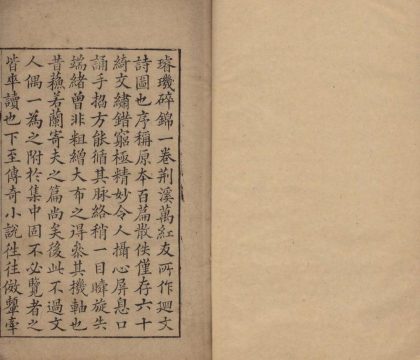 璿璣碎錦一卷荆溪萬紅友所作迴文
詩圖也序稱原本百篇散佚僅存六十
綺文繡錯窮極精妙令人攝心屏息口
誦手招方能循其脉絡稍一目瞬旋失
端緒曾非粗繒大布之得叅其機軸也
昔蘇若蘭寄夫之篇尚矣後此不過文
人偶一為之附於集中固不必覽者之
皆率讀也下至傳奇小說徃徃倣顰牽